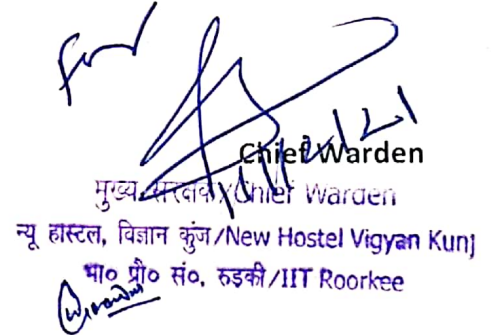 for
Chief Warden
मुख्य संरक्षक/Chief Warden
न्यू हास्टल, विज्ञान कुंज/New Hostel Vigyan Kunj
भा० प्रौ० सं०, रुड़की/IIT Roorkee